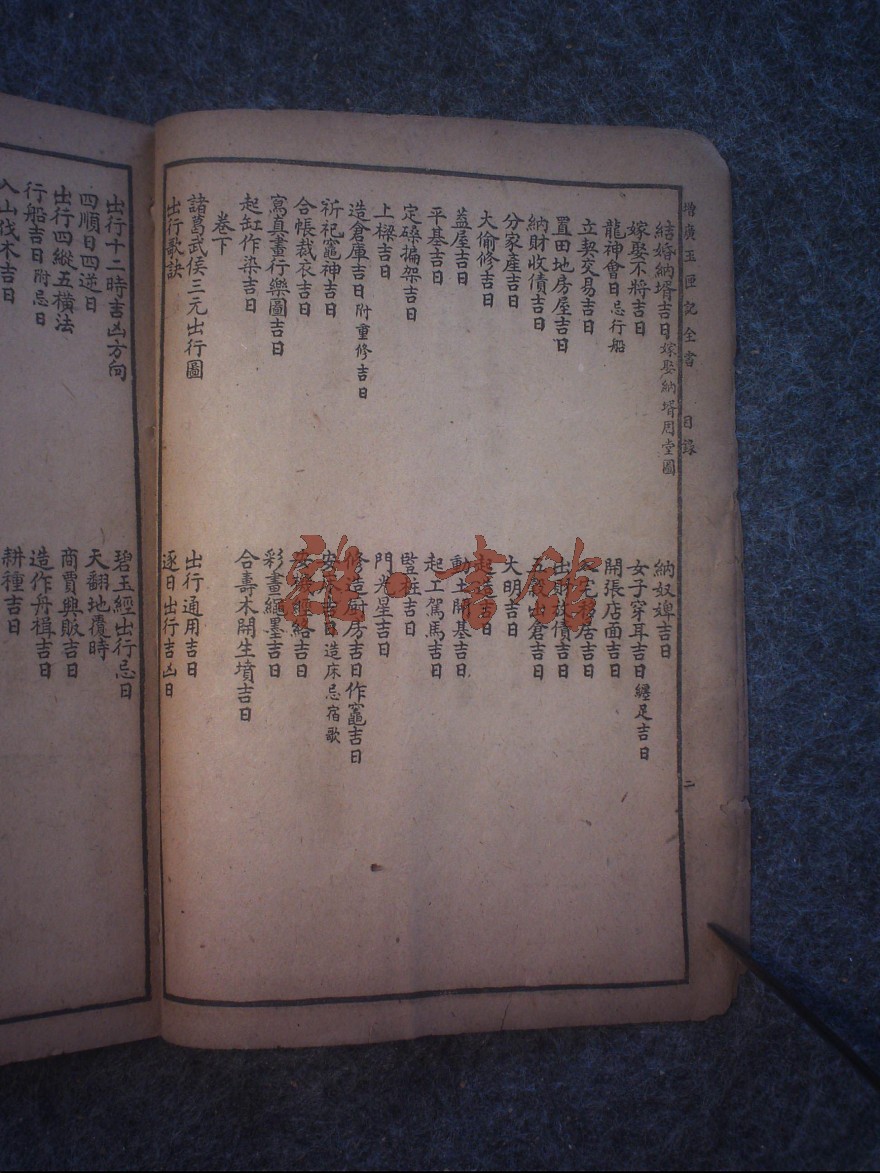 增廣玉匣記全書 目錄 二
結婚納壻吉日 嫁娶納壻周堂圖
納奴婢吉日
嫁娶不將吉日
女子穿耳吉日 纏足吉日
龍神會日 忌行船
開張店面吉日
立契交易吉日
居吉日
置田地房屋吉日
出財放債吉日
納財收債吉日
五穀出倉吉日
分家產吉日
大明吉日
大偷修吉日
起造吉日
蓋屋吉日
動土開基吉日
平基吉日
起工駕馬吉日
定磉搧架吉日
豎柱吉日
上樑吉日
門光星吉日
造倉庫吉日 附重修吉日
修造厨房吉日作竈吉日
祈祀竈神吉日
安床吉日 造床忌宿歌
合帳裁衣吉日
安機經絡吉日
寫真畫行樂圖吉日
彩畫繩墨吉日
起缸作染吉日
合壽木開生墳吉日
卷下
諸葛武侯三元出行圖
出行通用吉日
出行歌訣
逐日出行吉凶日
出行十二時吉凶方向
碧玉經出行忌日
四順日四逆日
天翻地覆時
出行四縱五橫法
商賈興販吉日
行船吉日 附忌日
造作舟楫吉日
入山伐木吉日
耕種吉日
書館